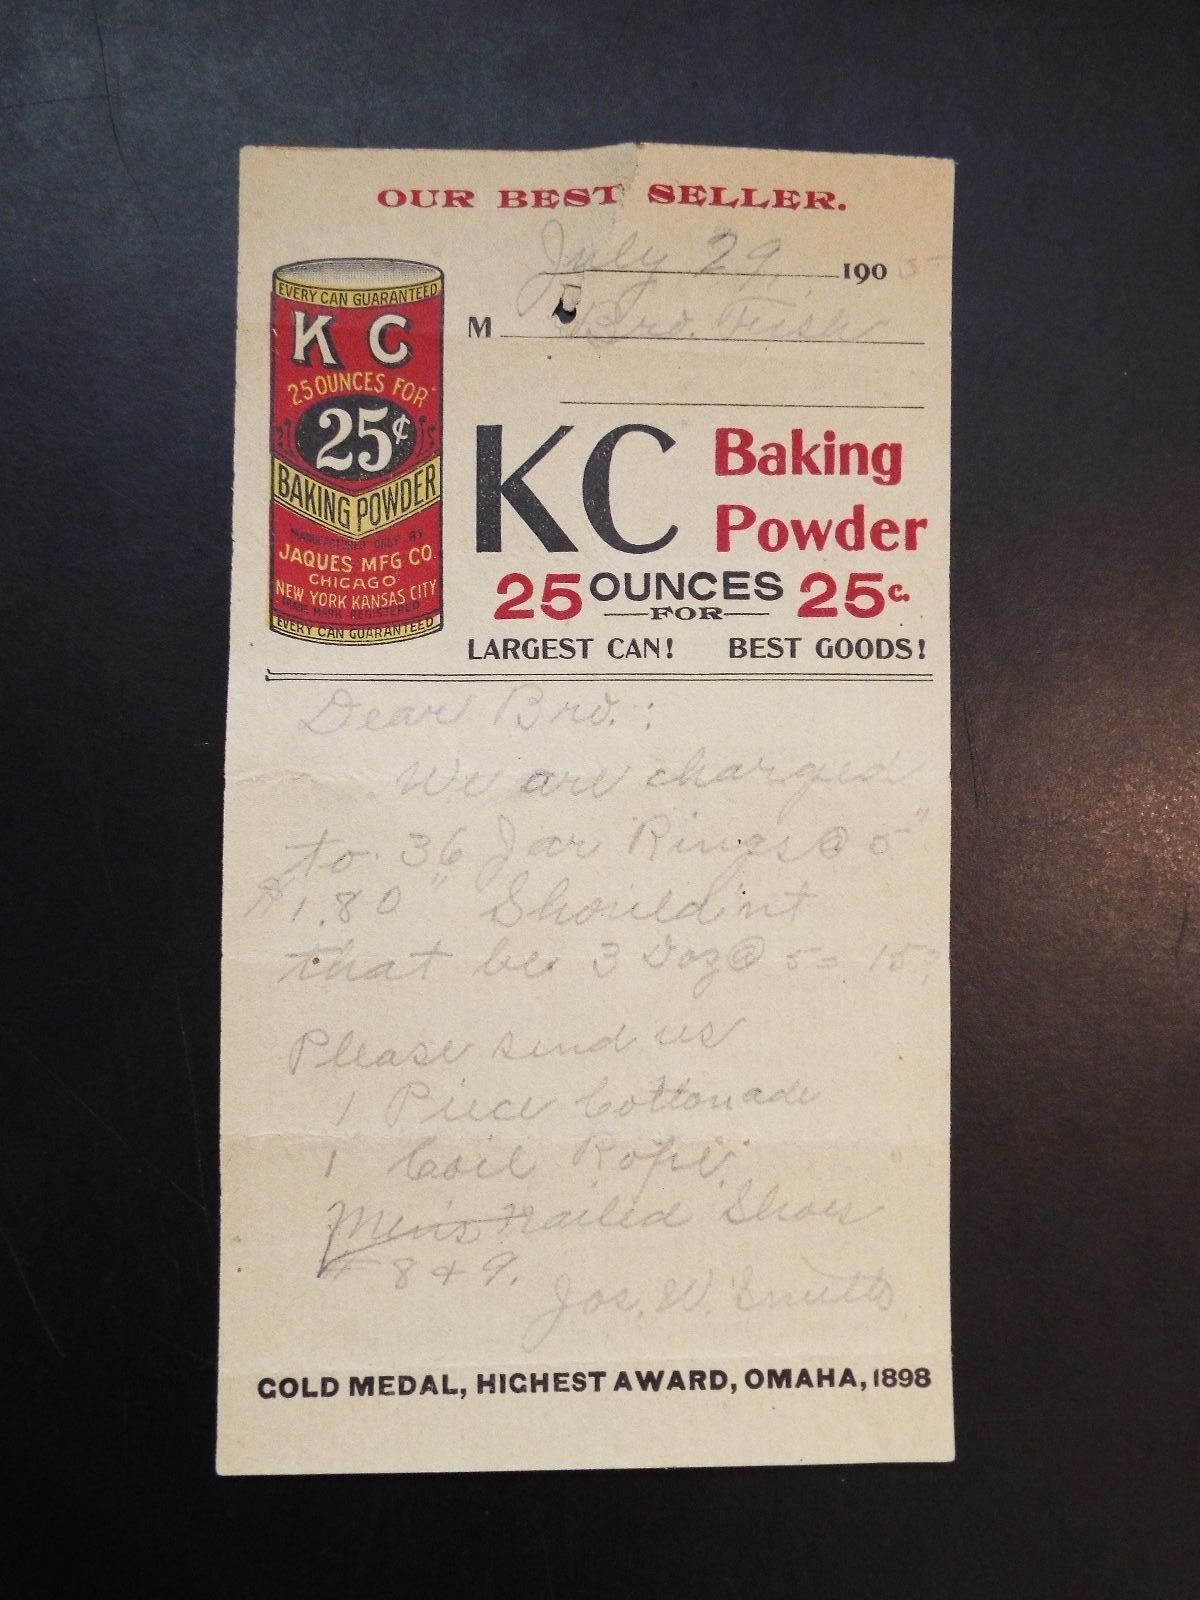 OUR BEST SELLER.
July 29, 1905
M Bro. Fish
EVERY CAN GUARANTEED
K C
25 OUNCES FOR
25¢
BAKING POWDER
MANUFACTURED ONLY BY
JAQUES MFG CO.
CHICAGO
NEW YORK KANSAS CITY
TRADE MARK REGISTERED
EVERY CAN GUARANTEED
KC Baking
Powder
25 OUNCES
FOR
25c.
LARGEST CAN! BEST GOODS!
Dear Bro.:
We are charged
to 36 Jar Rings @ 5"
$1.80" Should'nt
that be 3 Doz @ 5 = 15?
Please send us
1 Piece Cottonade
1 Coil Rope
Men's Nailed Shoes
# 8 & 9.
Jos. W.
GOLD MEDAL, HIGHEST AWARD, OMAHA, 1898